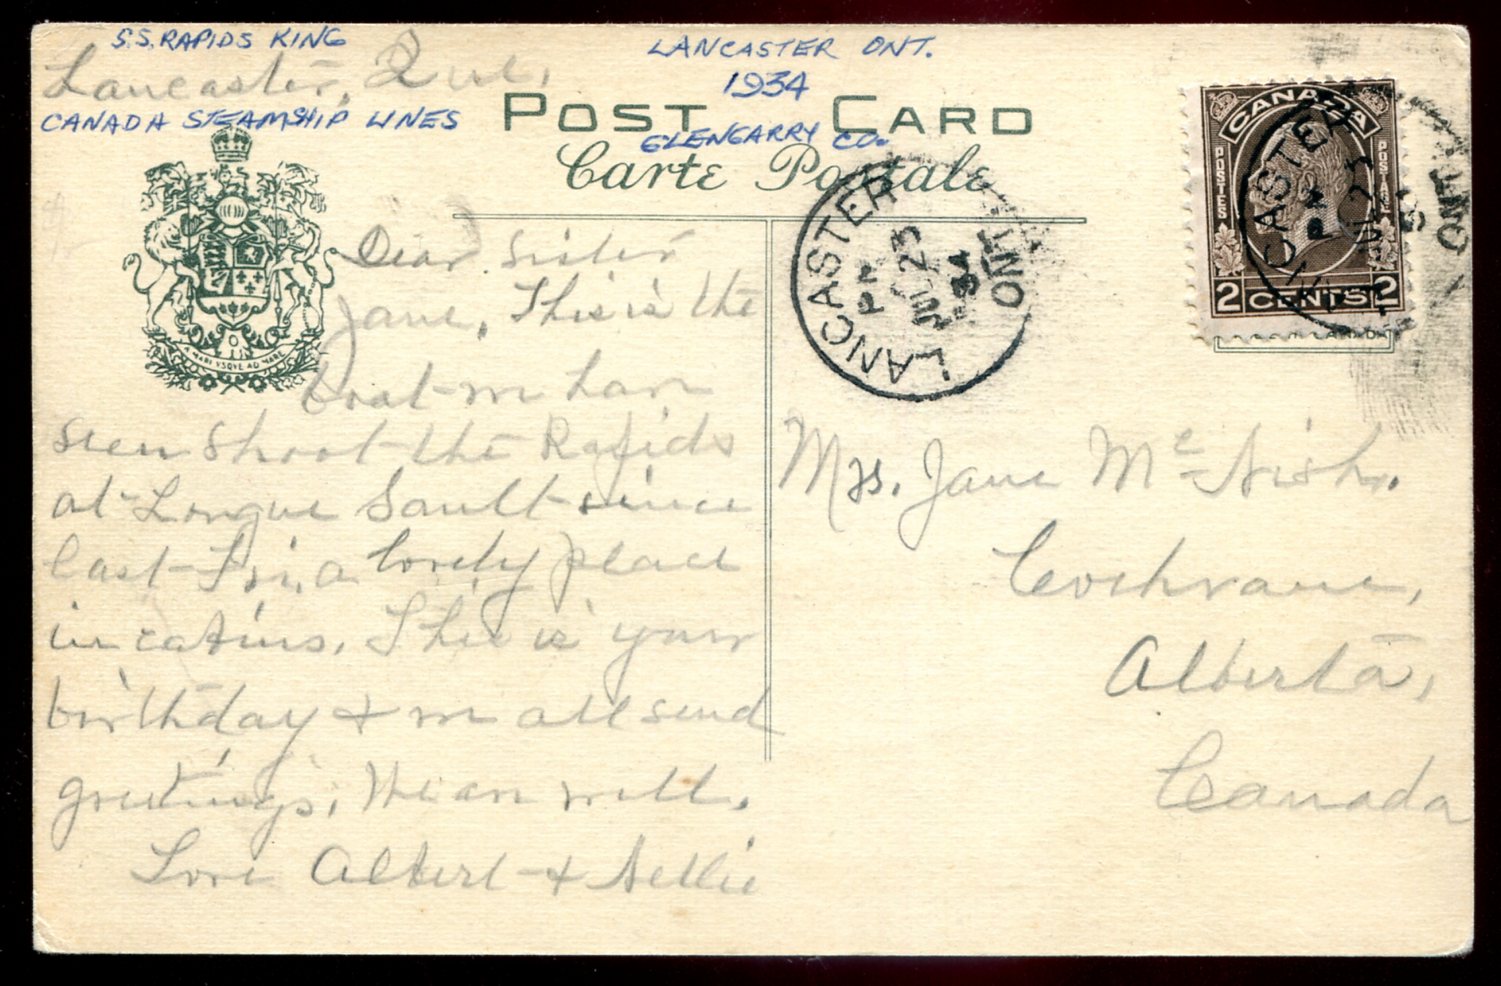 S.S. RAPIDS KING
LANCASTER ONT.
Lancaster, Que.
1934
CANADA STEAMSHIP LINES
POST CARD
GLENGARRY CO.
Carte Postale
Dear Sister
Jane, This is the
boat we have
seen shoot the Rapids
at Longue Sault since
last Fri, a lovely place
in cabins. This is your
birthday & we all send
greetings. We are well.
Love Albert & Nellie
A MARI VSQVE AD MARE
LANCASTER
PM
JUL 23
34
ONT
CANADA
POSTES
POSTAGE
2 CENTS 2
LANCASTER
PM
JUL 23
34
ONT
Mrs. Jane Mc Nish.
Cochrane,
Alberta,
Canada